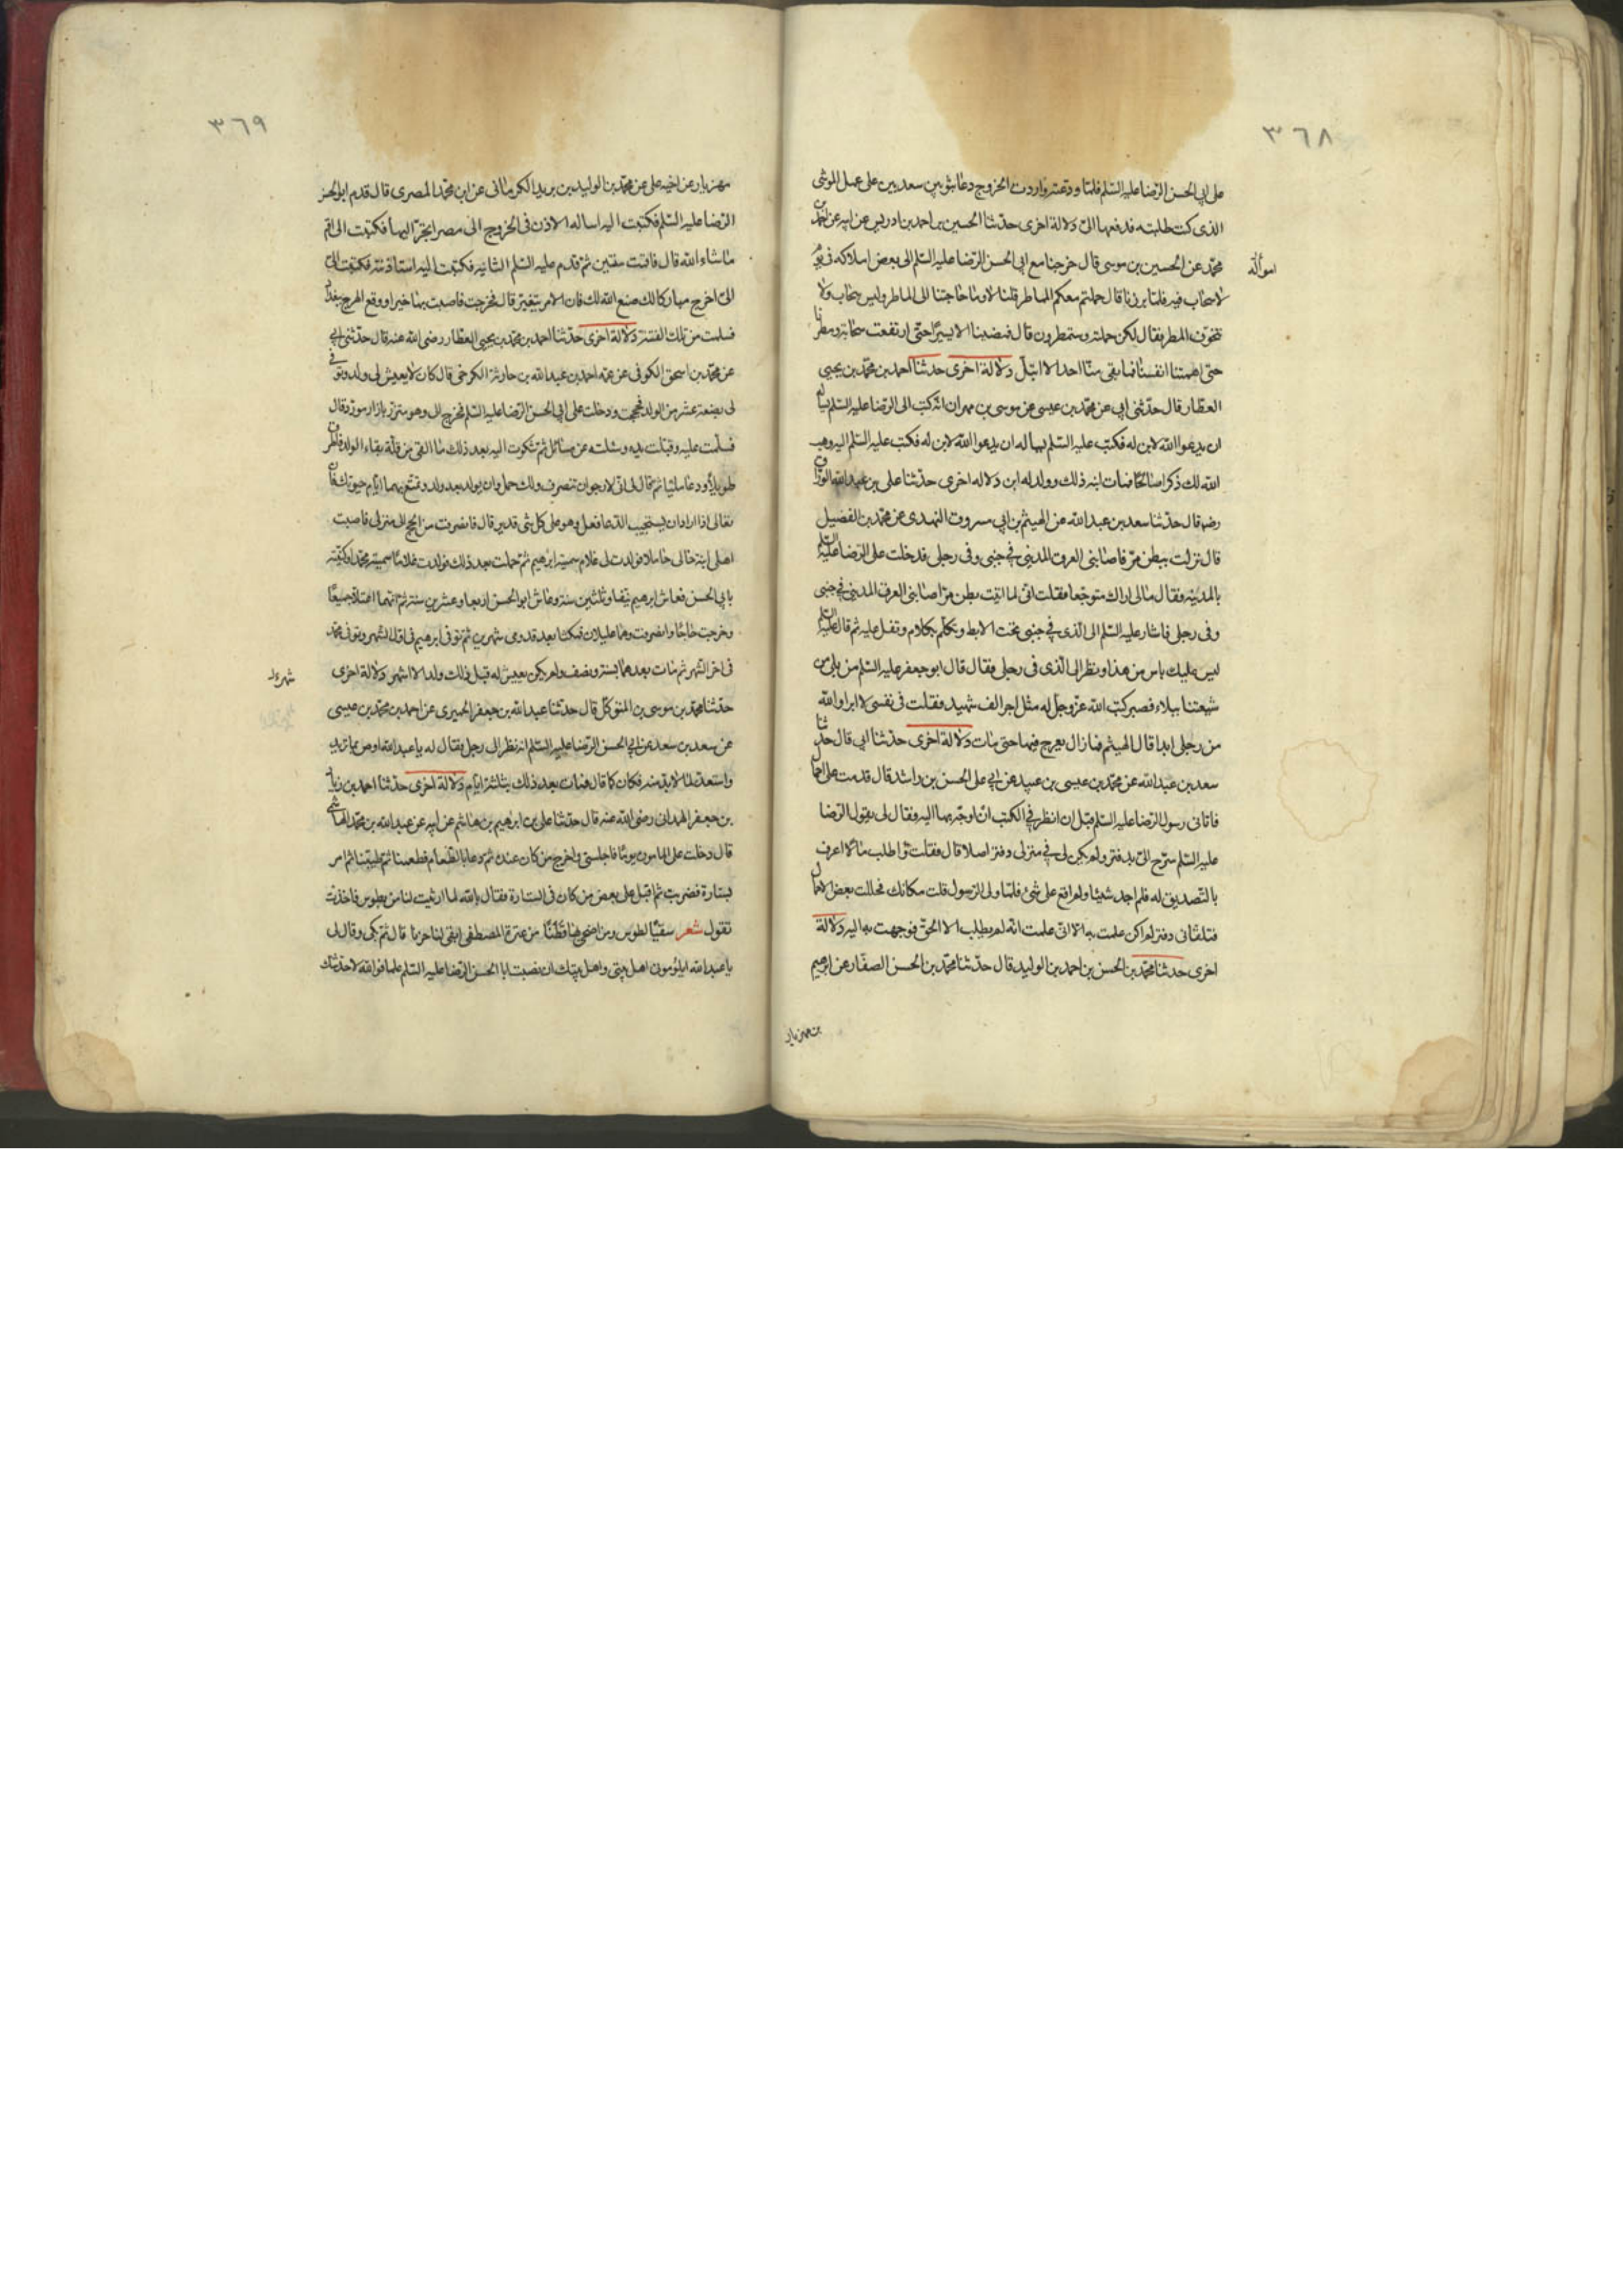 ٣٦٨
على ابي الحسن الرضا عليه السلم فلما ودعته واردت الخروج دعا بثوبين سعديين على عمل الوشى
الذى كنت طلبته فدفعهما الىّ دلالة اخرى حدثنا الحسين بن احمد بن ادريس عن ابيه عن احمد بن
محمد عن الحسين بن موسى قال خرجنا مع ابي الحسن الرضا عليه السلم الى بعض املاكه فى يوم
امواله
لا سحاب فيه فلما برزنا قال حملتم معكم المماطر قلنا لا وما حاجتنا الى المماطر وليس سحاب ولا
نتخوف المطر فقال لكن حملته وستمطرون قال فمضينا الا يسيرا حتى ارتفعت سحابة ومطرنا
حتى اهمتنا انفسنا فما بقى منا احد الا ابتل دلالة اخرى حدثنا احمد بن محمد بن يحيى
العطار قال حدثنى ابي عن محمد بن عيسى عن موسى بن مهران انه كتب الى الرضا عليه السلم يساله
ان يدعوا الله لابن له فكتب عليه السلم يساله ان يدعوا الله لابن له فكتب عليه السلم اليه وهب
الله لك ذكرا صالحا فمات ابنه ذلك وولد له ابن دلاله اخرى حدثنا على بن عبد الله الوراق
رضه قال حدثنا سعد بن عبد الله عن الهيثم بن ابي مسروق النهدى عن محمد بن الفضيل
قال نزلت ببطن مرّ فاصابنى العرق المدينى فى جنبى وفى رجلى فدخلت على الرضا عليه السلم
بالمدينه فقال مالى اراك متوجعا فقلت انى لما اتيت بطن مرّ اصابنى العرق المدينى فى جنبى
وفى رجلى فاشار عليه السلم الى الذى فى جنبى تحت الابط وتكلم بكلام وتفل عليه ثم قال عليه السلم
ليس عليك باس من هذا ونظر الى الذى فى رجلى فقال قال ابو جعفر عليه السلم من بلى من
شيعتنا ببلاء فصبر كتب الله عز وجل له مثل اجر الف شهيد فقلت فى نفسى لا ابرا والله
من رجلى ابدا قال الهيثم فما زال يعرج فيها حتى مات دلالة اخرى حدثنا ابي قال حدثنا
سعد بن عبد الله عن محمد بن عيسى بن عبيد عن ابي على الحسن بن راشد قال قدمت على احمال
فاتانى رسول الرضا عليه السلم قبل ان انظر فى الكتب ان اوجه بها اليه فقال لى يقول الرضا
عليه السلم سرّح الىّ بدفتر ولم يكن لى فى منزلى دفتر اصلا قال فقلت قوا اطلب ما لا اعرف
بالتصديق له فلم اجد شيئا ولم اقع على شئ فلما ولى الرسول قلت مكانك فحللت بعض الاحمال
فتلقانى دفتر لم اكن علمت به الا انى علمت انه لم يطلب الا الحق فوجهت به اليه دلالة
اخرى حدثنا محمد بن الحسن بن احمد بن الوليد قال حدثنا محمد بن الحسن الصفار عن ابرهيم
بن مهزيار
٣٦٩
مهزيار عن اخيه على عن محمد بن الوليد بن يزيد الكرمانى عن ابن محمد المصرى قال قدم ابو الحسن
الرضا عليه السلم فكتبت اليه اساله الاذن فى الخروج الى مصر اتجر اليها فكتبت الى اقم
ما شاء الله قال فاقمت سنتين ثم قدم عليه السلم الثانيه فكتبت اليه استاذنته فكتبت الىّ
الىّ اخرج مباركا لك صنع الله لك فان الامر يتغير قال فخرجت فاصبت بها خيرا ووقع الهرج ببغداد
فسلمت من تلك الفتنة دلالة اخرى حدثنا احمد بن محمد بن يحيى العطار رضى الله عنه قال حدثنى ابي
عن محمد بن اسحق الكوفى عن عمه احمد بن عبد الله بن حارثة الكرخى قال كان لا يعيش لى ولد وتوفى
لى بضعة عشر من الولد فحججت ودخلت على ابي الحسن الرضا عليه السلم فخرج الى وهو متزر بازار مورد وقال
فسلمت عليه وقبلت يده وسئلته عن مسائل ثم شكوت اليه بعد ذلك ما القى من قلة بقاء الولد فاطرق
طويلا ودعا مليا ثم قال لى انى لارجوا ان تنصرف ولك حمل وان يولد بعد ولد وتمتع بهما ايام حيوتك فان
تعالى اذا اراد ان يستجيب الدعا فعل وهو على كل شى قدير قال فانصرفت من الحج الى منزلى فاصبت
اهلى ابنة خالى حاملا فولدت لى غلام سميته ابرهيم ثم حملت بعد ذلك فولدت غلاما سميته محمدا وكنيته
بابي الحسن فعاش ابرهيم نيفا وثلثين سنة وعاش ابو الحسن اربعا وعشرين سنة ثم انهما اعتلا جميعا
وخرجت حاجا وانصرفت وهما عليلان فمكثا بعد قدومى شهرين ثم توفى ابرهيم فى اول الشهر وتوفى محمد
فى اخر الشهر ثم مات بعدهما بسنة ونصف ولم يكن يعيش له قبل ذلك ولد الا اشهر دلالة اخرى
شهر
حدثنا محمد بن موسى بن المتوكل قال حدثنا عبد الله بن جعفر الحميرى عن احمد بن محمد بن عيسى
عن سعد بن سعد عن ابي الحسن الرضا عليه السلم انه نظر الى رجل فقال له يا عبد الله اوص بما تريد
واستعد لما لا بد منه فكان كما قال فمات بعد ذلك بثلثة ايام دلالة اخرى حدثنا احمد بن زياد
بن جعفر الهمدانى رضى الله عنه قال حدثنا على بن ابرهيم بن هاشم عن ابيه عن عبد الله بن محمد الهاشمى
قال دخلت على المامون يوما فاجلسنى واخرج من كان عنده ثم دعا بالطعام فطعمنا ثم طيبنا ثم امر
بستارة فضربت ثم اقبل على بعض من كان فى الستارة فقال بالله لما ارثيت لنا من بطوس فاخذت
تقول شعر سقيا لطوس ومن اضحى بها قطنا من عترة المصطفى ابقى لنا حزنا قال ثم بكى وقال لى
يا عبد الله ايلومونى اهل بيتى واهل بيتك ان نصبت ابا الحسن الرضا عليه السلم علما فوالله لاحدثنك